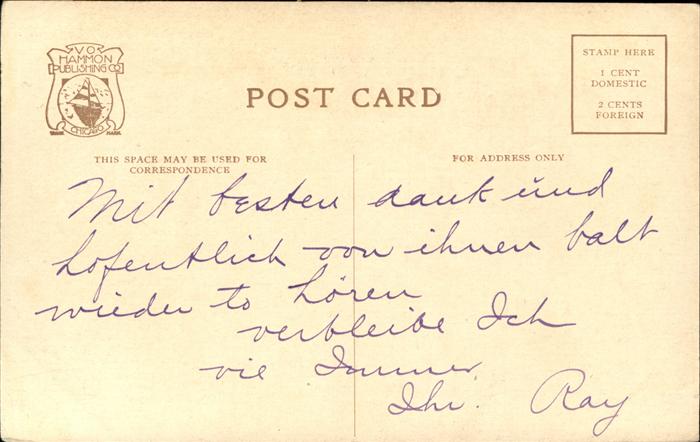 V.O.
HAMMON
PUBLISHING CO.
TRADE CHICAGO MARK
POST CARD
STAMP HERE
1 CENT
DOMESTIC
2 CENTS
FOREIGN
THIS SPACE MAY BE USED FOR
CORRESPONDENCE
FOR ADDRESS ONLY
Mit besten dank und
hofentlich von ihnen balt
wieder to hören
verbleibe Ich
vie Immer
Ihr. Ray